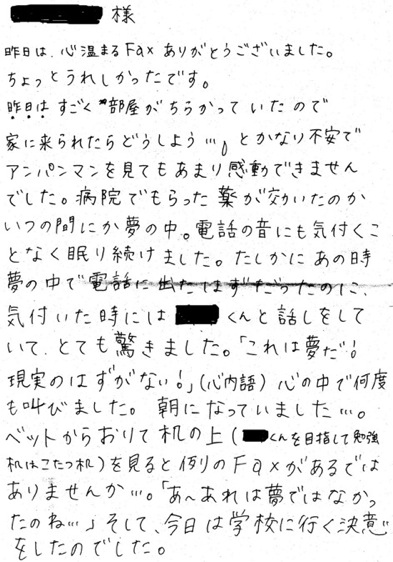 様
昨日は、心温まるFaxありがとうございました。
ちょっとうれしかったです。
昨日はすごく部屋がちらかっていたので
家に来られたらどうしよう…。とかなり不安で
アンパンマンを見てもあまり感動できません
でした。病院でもらった薬が効いたのか
いつの間にか夢の中。電話の音にも気付くこ
となく眠り続けました。たしかにあの時
夢の中で電話に出たはずだったのに、
気付いた時には くんと話しをして
いて、とても驚きました。「これは夢だ!
現実のはずがない!」(心内語)心の中で何度
も叫びました。朝になっていました…。
ベットからおりて机の上( くんを目指して勉強
机はこたつ机)を見ると例のFaxがあるでは
ありませんか…。「あ〜あれは夢ではなかっ
たのね…」そして、今日は学校に行く決意
をしたのでした。